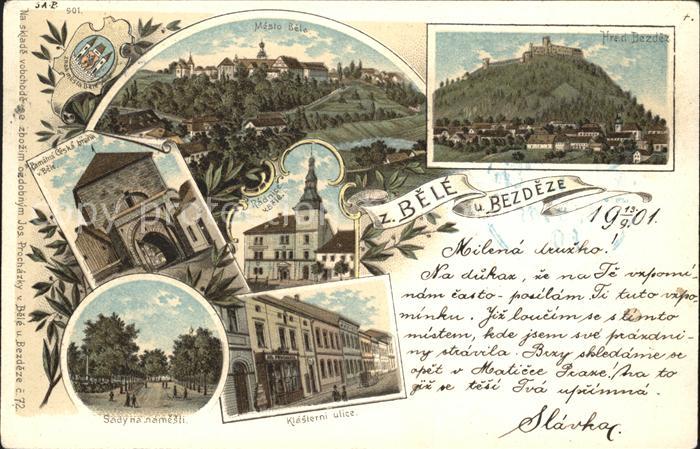 S.A.P. 901.
Město Bělé.
Hrad Bezděz
Znak města Bělé
Na skladě v obchodě se zbožím ozdobným Jos. Procházky v Bělé u Bezděze č. 72.
Památná Česká brána
v Bělé.
Radnice
v Bělé.
z BĚLÉ
u BEZDĚZE
19 13/9. 01.
Milená družko!
Na důkaz, že na Tě vzpomí
nám často - posílám Ti tuto vzpo
mínku. Již loučím se s tímto
místem, kde jsem své prázdni-
ny strávila. Brzy skledáme se
opět v Matičce Praze! na to
již se těší Tvá upřímná
Slávka.
Sady na náměstí.
Klášterní ulice.